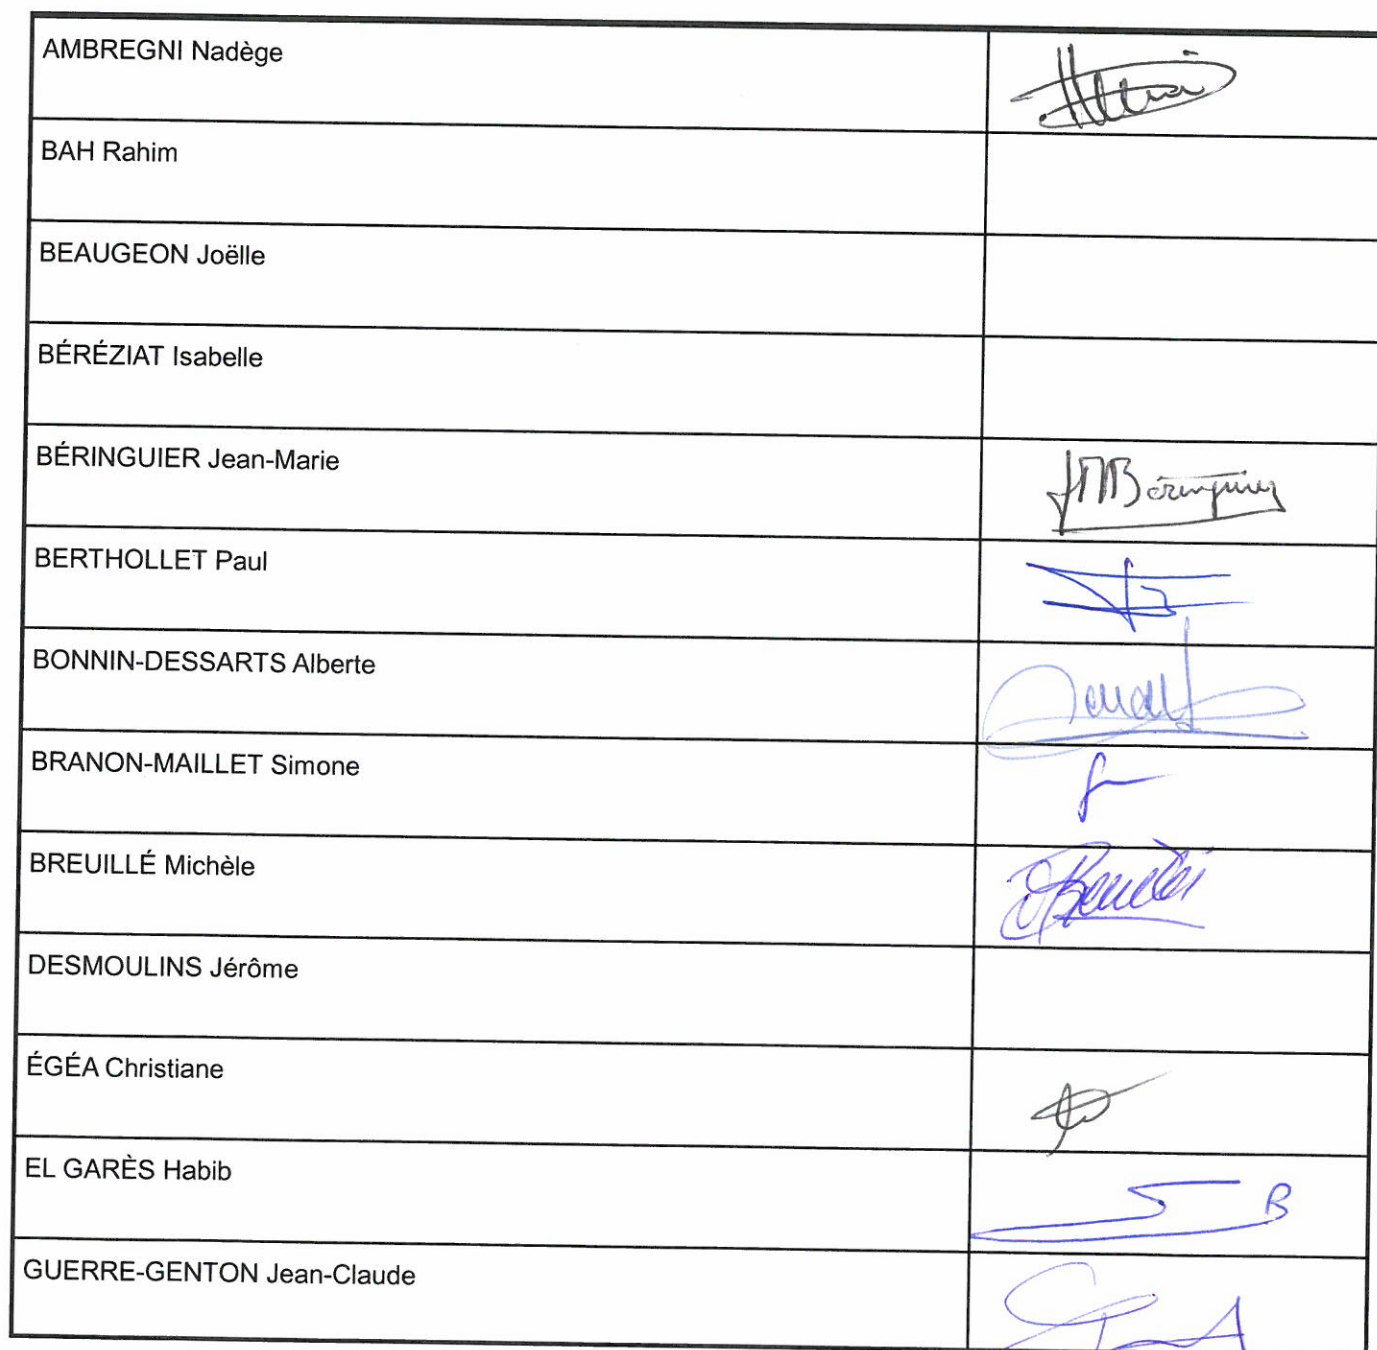 AMBREGNI Nadège
BAH Rahim
BEAUGEON Joëlle
BÉRÉZIAT Isabelle
BÉRINGUIER Jean-Marie
JMBéringuier
BERTHOLLET Paul
BONNIN-DESSARTS Alberte
BRANON-MAILLET Simone
BREUILLÉ Michèle
DESMOULINS Jérôme
ÉGÉA Christiane
EL GARÈS Habib
B
GUERRE-GENTON Jean-Claude